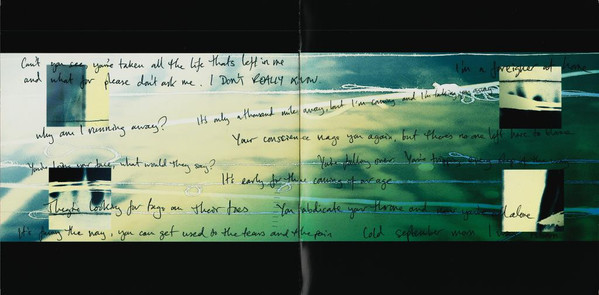 Can't you see you've taken all the life that's left in me
and what for please don't ask me. I DON'T REALLY KNOW
I'm a foreigner at home
It's only a thousand miles away, but I'm coming and I'm taking you
why am I running away?
Your conscience nags you again, but there's no one left here to blame
your face, what would they say?
You're falling over
It's early for the coming of our age
They're looking for tags on their toes
You abdicate your throne and now you're alone
It's funny the way, you can get used to the tears and the pain
Cold september moon I